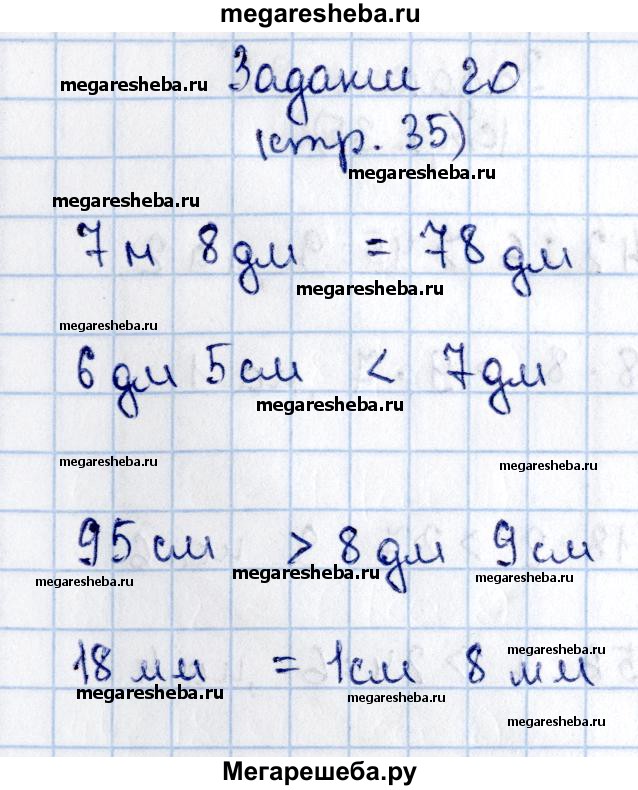 megaresheba.ru
megaresheba.ru Задание 20
(стр. 35)
megaresheba.ru
megaresheba.ru
7 м 8 дм = 78 дм
megaresheba.ru
megaresheba.ru
6 дм 5 см < 7 дм
megaresheba.ru
megaresheba.ru megaresheba.ru
95 см > 8 дм 9 см
megaresheba.ru megaresheba.ru megaresheba.ru
megaresheba.ru
18 мм = 1 см 8 мм
megaresheba.ru megaresheba.ru
megaresheba.ru
Мегарешеба.ру